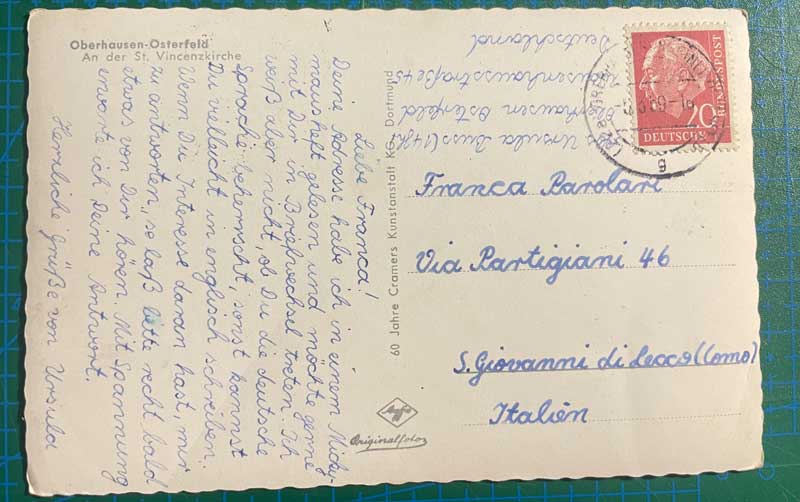 Oberhausen-Osterfeld
An der St. Vincenzkirche
Liebe Franca!
Deine Adresse habe ich in einem Micky-
maus heft gelesen und möchte gerne
mit Dir in Briefwechsel treten. Ich
weiß aber nicht, ob Du die deutsche
Sprache beherrschst, sonst kannst
Du vielleicht in englisch schreiben.
Wenn Du Interesse daran hast, mir
zu antworten, so laß bitte recht bald
etwas von Dir hören. Mit Spannung
erwarte ich Deine Antwort.
Herzliche Grüße von Ursula
60 Jahre Cramers Kunstanstalt KG., Dortmund
Ursula
Osterfeld
45
Deutschland
20
DEUTSCHE
BUNDESPOST
g
Franca Parolari
Via Partigiani 46
S. Giovanni di Lecco (Como)
Italien
Agfa
Originalfoto